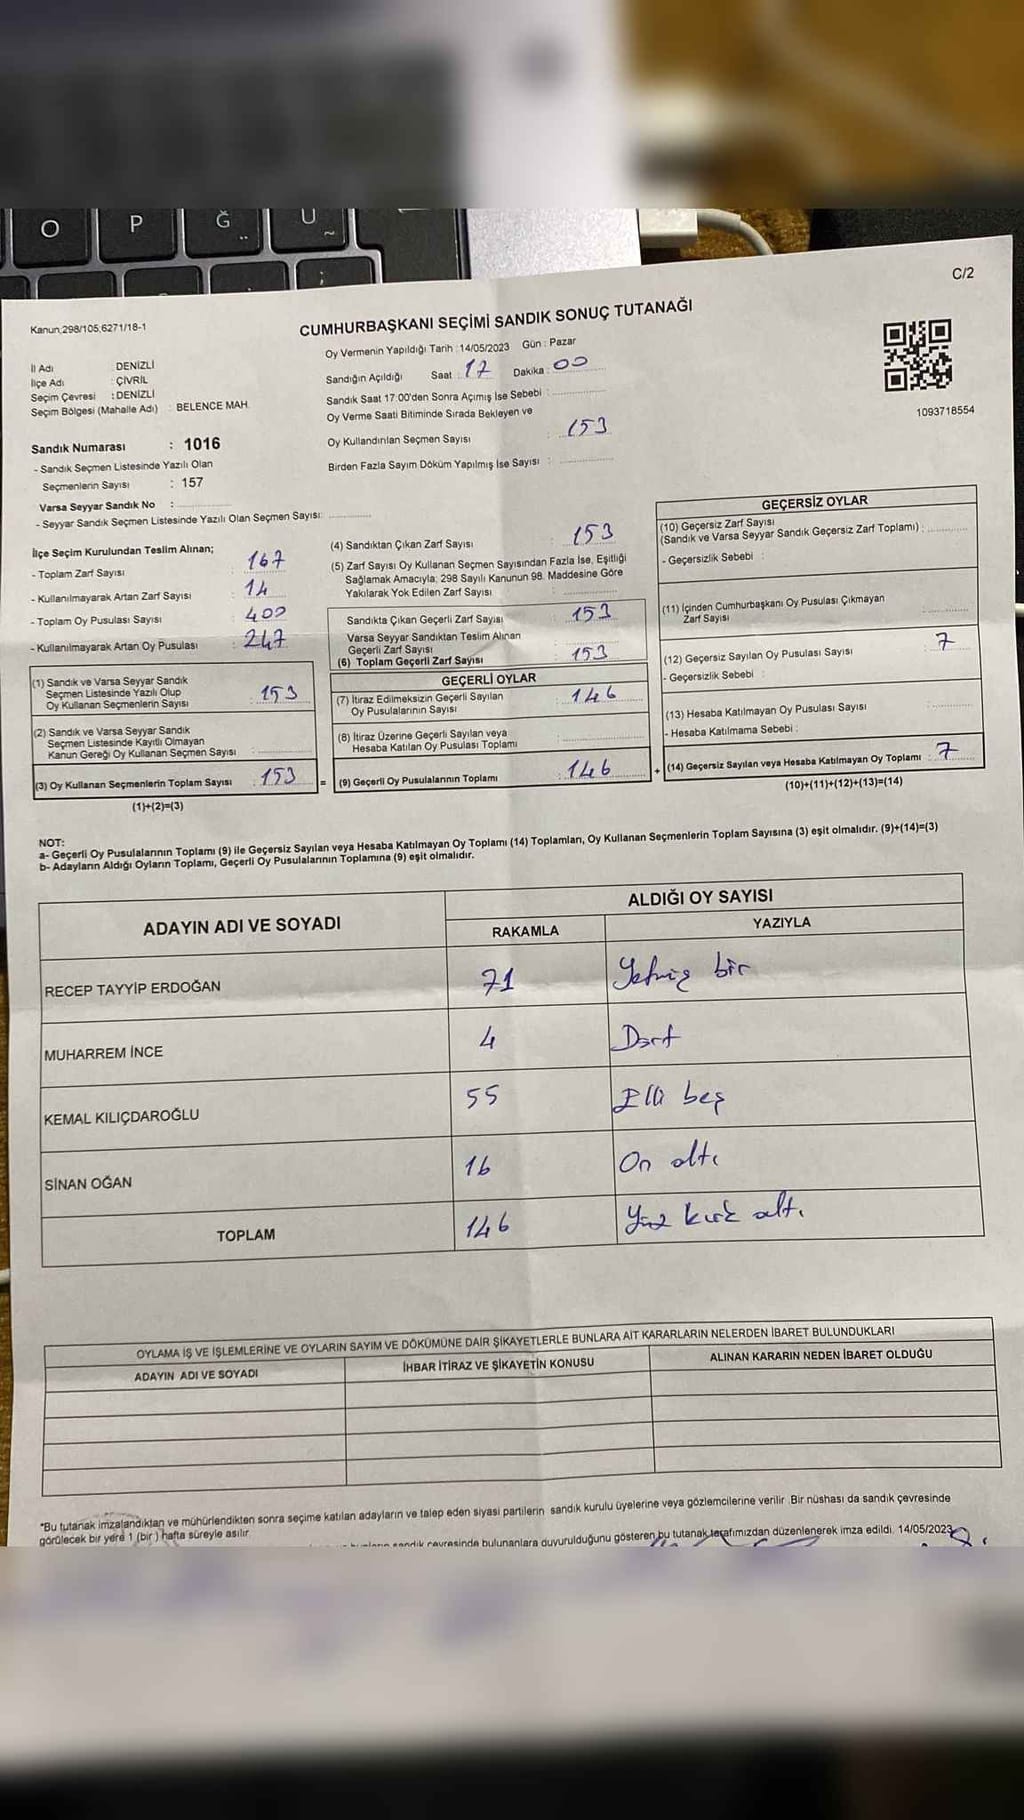 O P Ğ Ü
C/2
Kanun:298/105,6271/18-1
CUMHURBAŞKANI SEÇİMİ SANDIK SONUÇ TUTANAĞI
İl Adı : DENİZLİ
İlçe Adı : ÇİVRİL
Seçim Çevresi : DENİZLİ
Seçim Bölgesi (Mahalle Adı) : BELENCE MAH.
Oy Vermenin Yapıldığı Tarih : 14/05/2023 Gün : Pazar
Sandığın Açıldığı Saat : 17 Dakika : 00
Sandık Saat 17:00'den Sonra Açımış İse Sebebi :
Oy Verme Saati Bitiminde Sırada Bekleyen ve
Oy Kullandırılan Seçmen Sayısı : 153
Birden Fazla Sayım Döküm Yapılmış İse Sayısı :
1093718554
Sandık Numarası : 1016
- Sandık Seçmen Listesinde Yazılı Olan
Seçmenlerin Sayısı : 157
Varsa Seyyar Sandık No :
- Seyyar Sandık Seçmen Listesinde Yazılı Olan Seçmen Sayısı:
İlçe Seçim Kurulundan Teslim Alınan;
- Toplam Zarf Sayısı : 167
- Kullanılmayarak Artan Zarf Sayısı : 14
- Toplam Oy Pusulası Sayısı : 400
- Kullanılmayarak Artan Oy Pusulası : 247
(1) Sandık ve Varsa Seyyar Sandık
Seçmen Listesinde Yazılı Olup
Oy Kullanan Seçmenlerin Sayısı : 153
(2) Sandık ve Varsa Seyyar Sandık
Seçmen Listesinde Kayıtlı Olmayan
Kanun Gereği Oy Kullanan Seçmen Sayısı :
(3) Oy Kullanan Seçmenlerin Toplam Sayısı : 153 =
(1)+(2)=(3)
(4) Sandıktan Çıkan Zarf Sayısı : 153
(5) Zarf Sayısı Oy Kullanan Seçmen Sayısından Fazla İse, Eşitliği
Sağlamak Amacıyla; 298 Sayılı Kanunun 98. Maddesine Göre
Yakılarak Yok Edilen Zarf Sayısı :
Sandıkta Çıkan Geçerli Zarf Sayısı : 153
Varsa Seyyar Sandıktan Teslim Alınan
Geçerli Zarf Sayısı :
(6) Toplam Geçerli Zarf Sayısı : 153
GEÇERLİ OYLAR
(7) İtiraz Edilmeksizin Geçerli Sayılan
Oy Pusulalarının Sayısı : 146
(8) İtiraz Üzerine Geçerli Sayılan veya
Hesaba Katılan Oy Pusulası Toplamı :
(9) Geçerli Oy Pusulalarının Toplamı : 146 +
GEÇERSİZ OYLAR
(10) Geçersiz Zarf Sayısı
(Sandık ve Varsa Seyyar Sandık Geçersiz Zarf Toplamı) :
- Geçersizlik Sebebi :
(11) İçinden Cumhurbaşkanı Oy Pusulası Çıkmayan
Zarf Sayısı :
(12) Geçersiz Sayılan Oy Pusulası Sayısı : 7
- Geçersizlik Sebebi :
(13) Hesaba Katılmayan Oy Pusulası Sayısı :
- Hesaba Katılmama Sebebi :
(14) Geçersiz Sayılan veya Hesaba Katılmayan Oy Toplamı : 7
(10)+(11)+(12)+(13)=(14)
NOT:
a- Geçerli Oy Pusulalarının Toplamı (9) ile Geçersiz Sayılan veya Hesaba Katılmayan Oy Toplamı (14) Toplamları, Oy Kullanan Seçmenlerin Toplam Sayısına (3) eşit olmalıdır. (9)+(14)=(3)
b- Adayların Aldığı Oyların Toplamı, Geçerli Oy Pusulalarının Toplamına (9) eşit olmalıdır.
ADAYIN ADI VE SOYADI ALDIĞI OY SAYISI
RAKAMLA YAZIYLA
RECEP TAYYİP ERDOĞAN 71 Yetmiş bir
MUHARREM İNCE 4 Dört
KEMAL KILIÇDAROĞLU 55 Elli beş
SİNAN OĞAN 16 On altı
TOPLAM 146 Yüz kırk altı
OYLAMA İŞ VE İŞLEMLERİNE VE OYLARIN SAYIM VE DÖKÜMÜNE DAİR ŞİKAYETLERLE BUNLARA AİT KARARLARIN NELERDEN İBARET BULUNDUKLARI
ADAYIN ADI VE SOYADI İHBAR İTİRAZ VE ŞİKAYETİN KONUSU ALINAN KARARIN NEDEN İBARET OLDUĞU
*Bu tutanak imzalandıktan ve mühürlendikten sonra seçime katılan adayların ve talep eden siyasi partilerin sandık kurulu üyelerine veya gözlemcilerine verilir. Bir nüshası da sandık çevresinde
görülecek bir yere 1 (bir) hafta süreyle asılır.
sandık çevresinde bulunanlara duyurulduğunu gösteren bu tutanak tarafımızdan düzenlenerek imza edildi. 14/05/2023